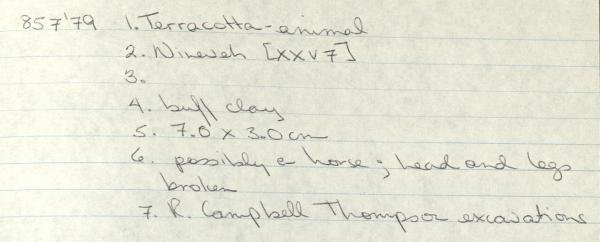 857'79 1. Terracotta-animal
2. Nineveh [XXV7]
3.
4. buff clay
5. 7.0 x 3.0cm
6. possibly a horse; head and legs
broken
7. R. Campbell Thompson excavations